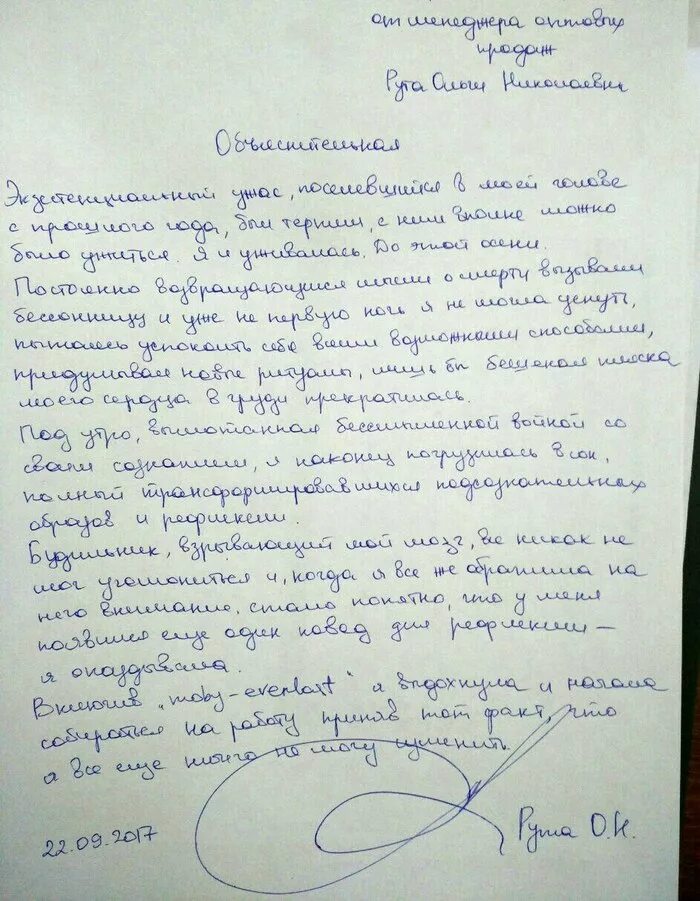 от менеджера оптовых
продаж
Рута Ольги Николаевны
Объяснительная
Экзестенциальный ужас, поселевшийся в моей голове
с прошлого года, был терпим, с ним вполне можно
было ужиться. Я и уживалась. До этой осени.
Постоянно возвращающиеся мысли о смерти вызывали
бессонницу и уже не первую ночь я не могла уснуть,
пытаясь успокоить себя всеми возможными способами,
придумывая новые ритуалы, лишь бы бешеная пляска
моего сердца в груди прекратилась.
Под утро, вымотанная бессмысленной войной со
своим сознанием, я наконец погрузилась в сон,
полный трансформировавшихся подсознательных
образов и рефлексии.
Будильник, взрывающий мой мозг, все никак не
мог угомониться и, когда я все же обратила на
него внимание, стало понятно, что у меня
появился еще один повод для рефлексии –
я опаздывала.
Включив „moby-everlast" я вздохнула и начала
собираться на работу приняв тот факт, что
я все еще ничего не могу изменить.
22.09.2017
Рута О.Н.